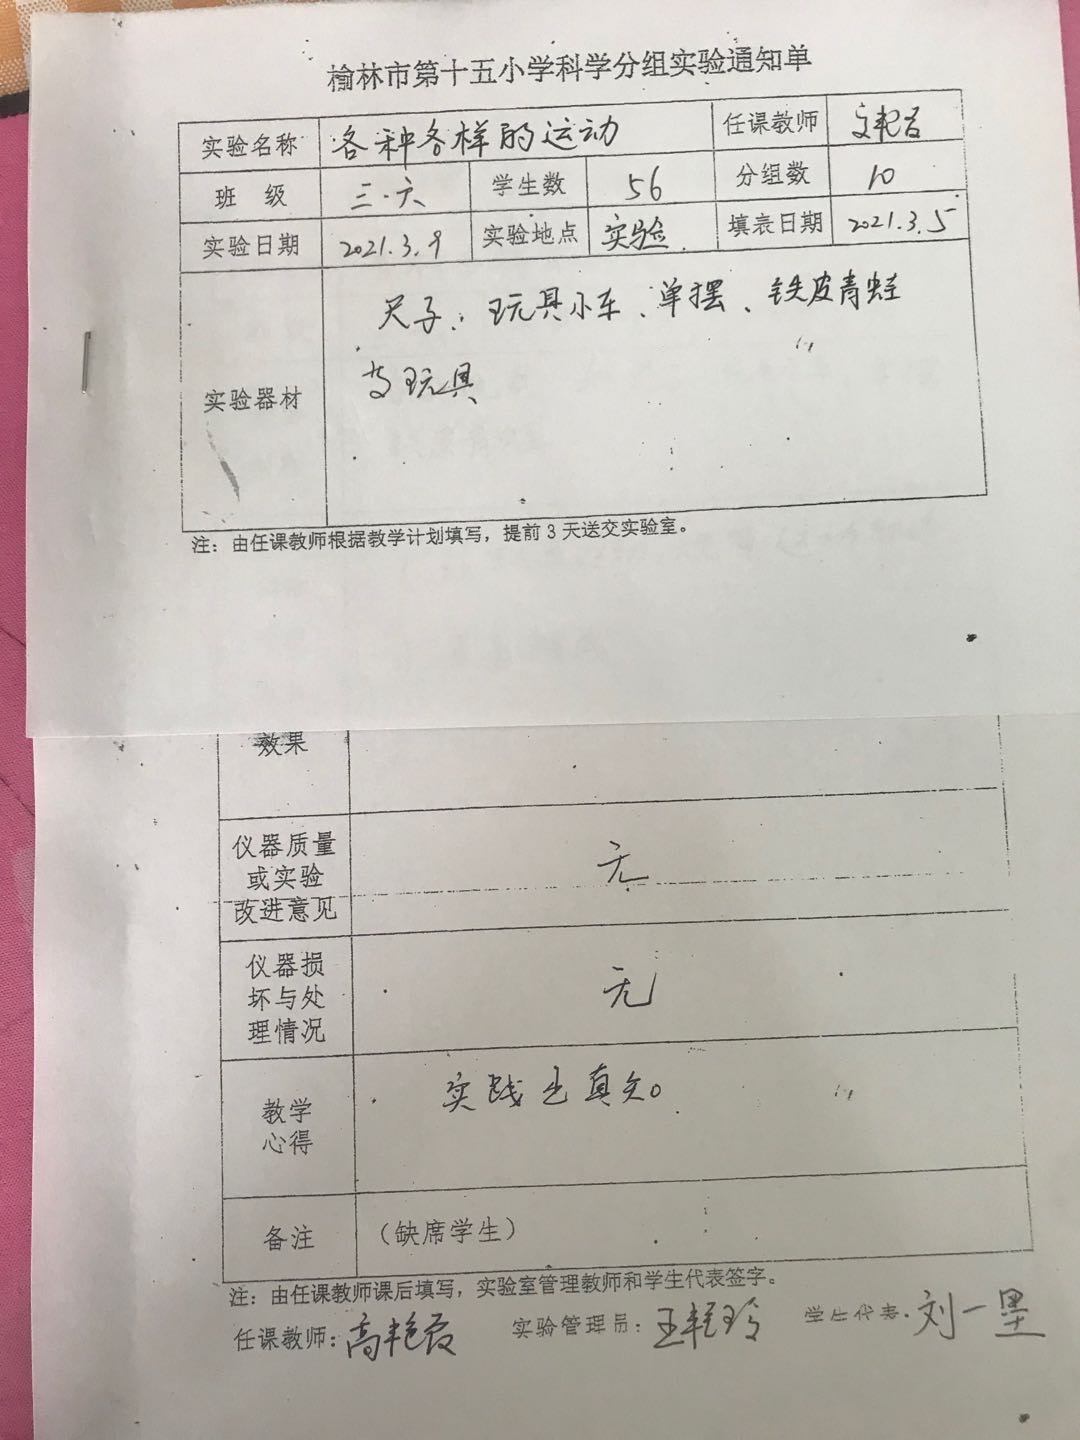 榆林市第十五小学科学分组实验通知单
实验名称 各种各样的运动 任课教师
班 级 三.六 学生数 56 分组数 10
实验日期 2021.3.9 实验地点 实验 填表日期 2021.3.5
实验器材 尺子、玩具小车、单摆、铁皮青蛙
等玩具
注：由任课教师根据教学计划填写，提前3天送交实验室。
效果
仪器质量
或实验 无
改进意见
仪器损
坏与处 无
理情况
教学 实践出真知。
心得
备注 （缺席学生）
注：由任课教师课后填写，实验室管理教师和学生代表签字。
任课教师：高艳 实验管理员：王艳玲 学生代表：刘一墨